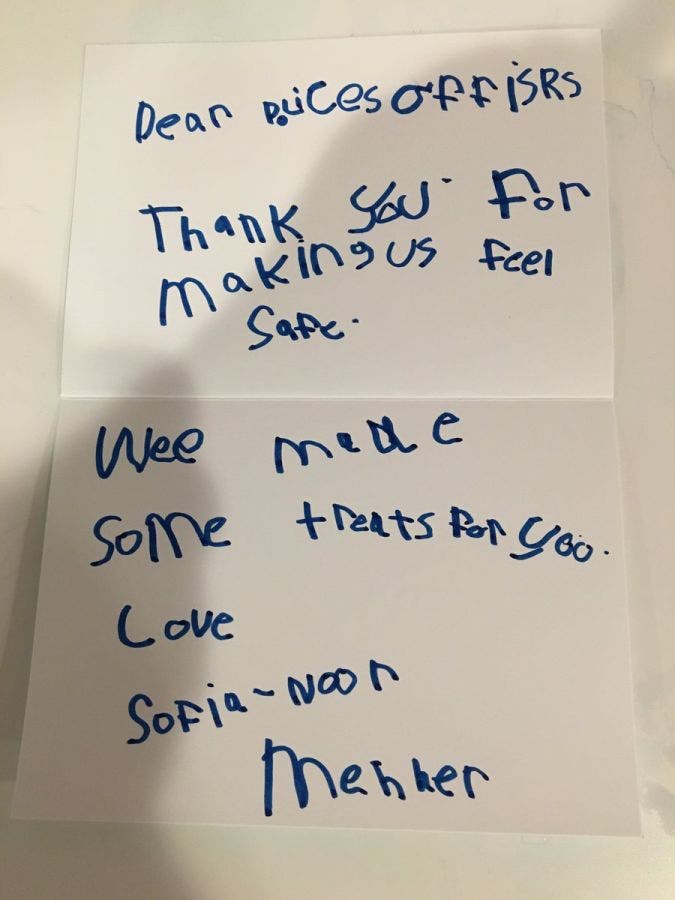 Dear policesoffisrs
Thank you for
making us feel
safe.
Wee made
some treats for you.
Love
Sofia-Noor
Mehher